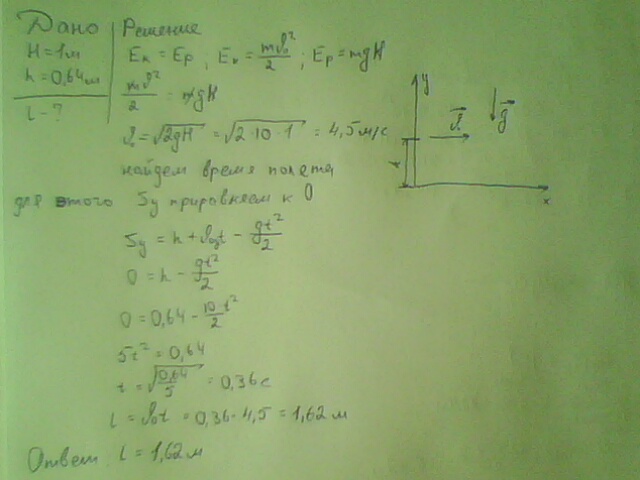 Дано
H = 1 м
h = 0,64 м
l - ?
Решение
Eк = Ep ; Eк = mϑ₀²/2 ; Ep = mgH
mϑ²/2 = mgH
ϑ₀ = √2gH = √2·10·1 = 4,5 м/с
найдем время полета
для этого Sy приравняем к 0
Sy = h + ϑ₀yt - gt²/2
0 = h - gt²/2
0 = 0,64 - 10/2 t²
5t² = 0,64
t = √0,64/5 = 0,36 с
l = ϑ₀t = 0,36 · 4,5 = 1,62 м
Ответ l = 1,62 м
y
ϑ₀
g
h
x